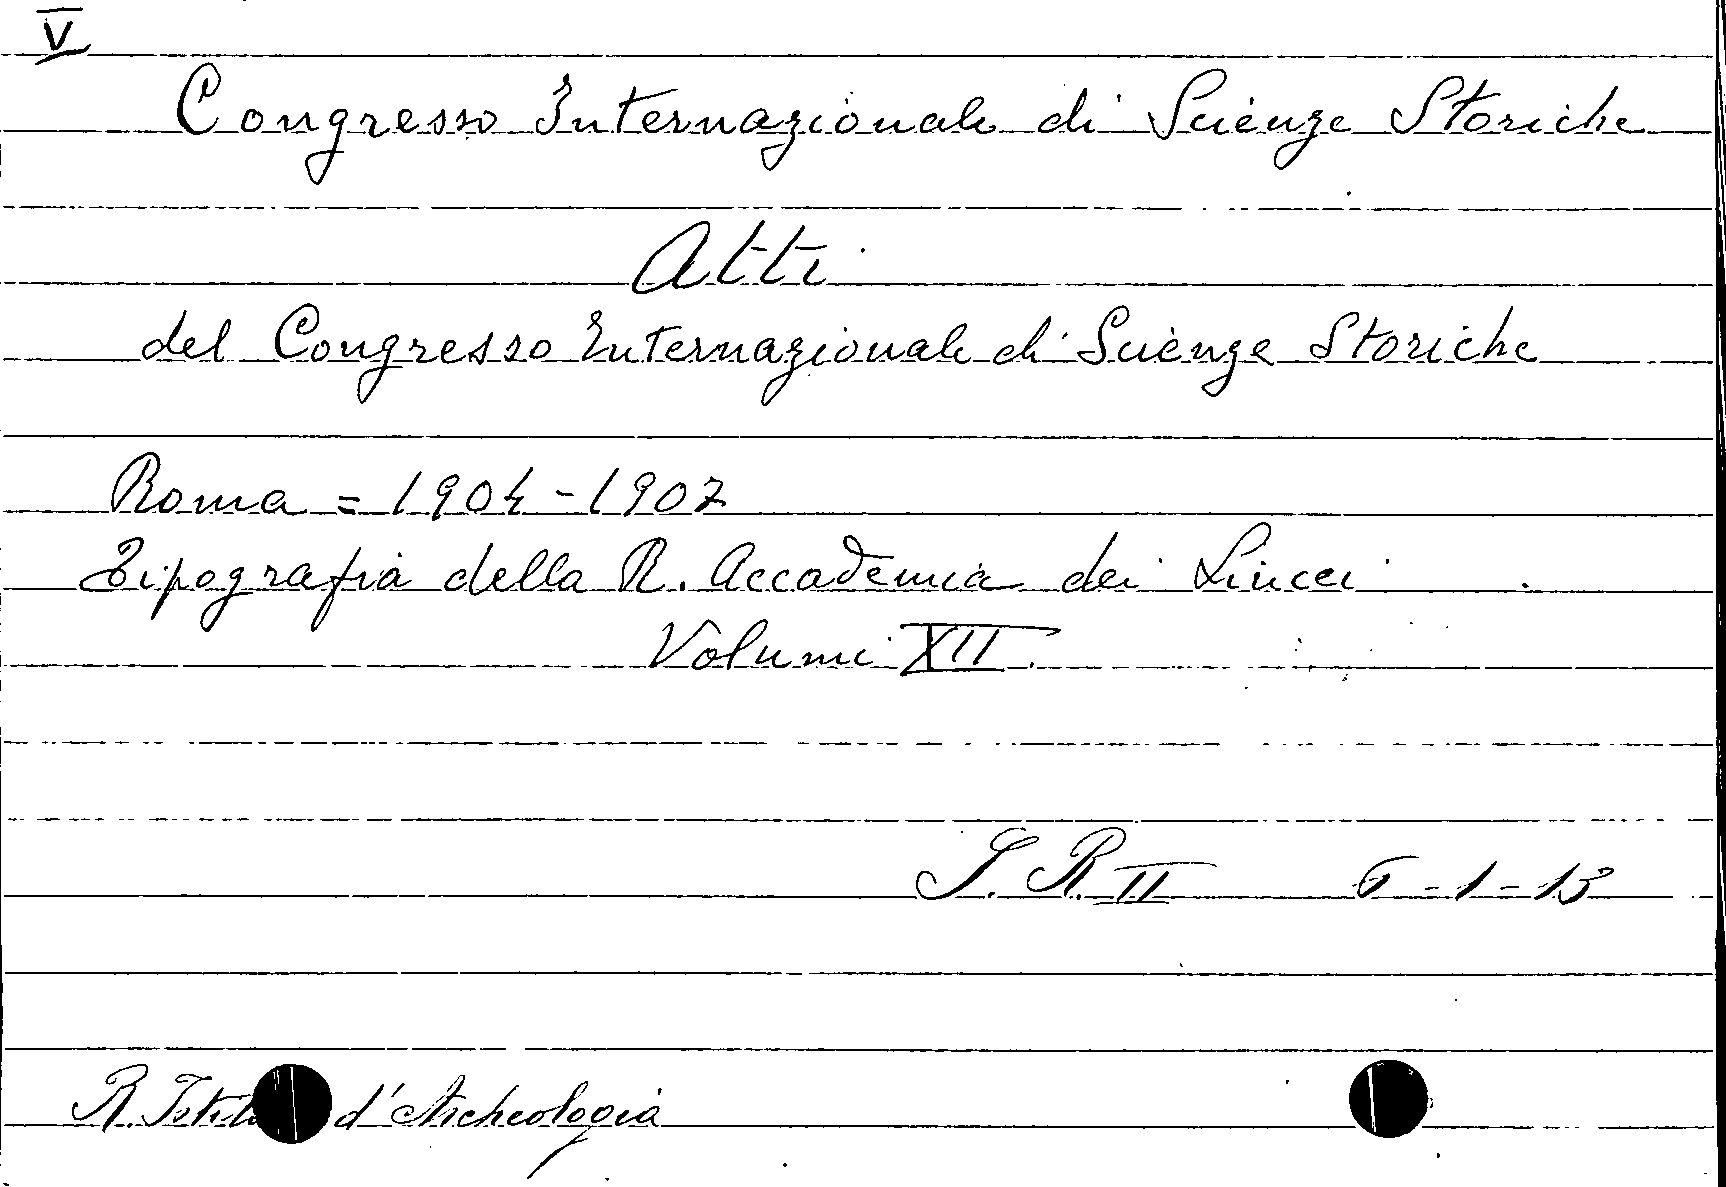 V
Congresso Internazionale di Scienze Storiche
Atti
del Congresso Internazionale di Scienze Storiche
Roma = 1904-1907
Tipografia della R. Accademia dei Lincei
Volumi XII.
S. R. II 6-1-13
R. d'Archeologia